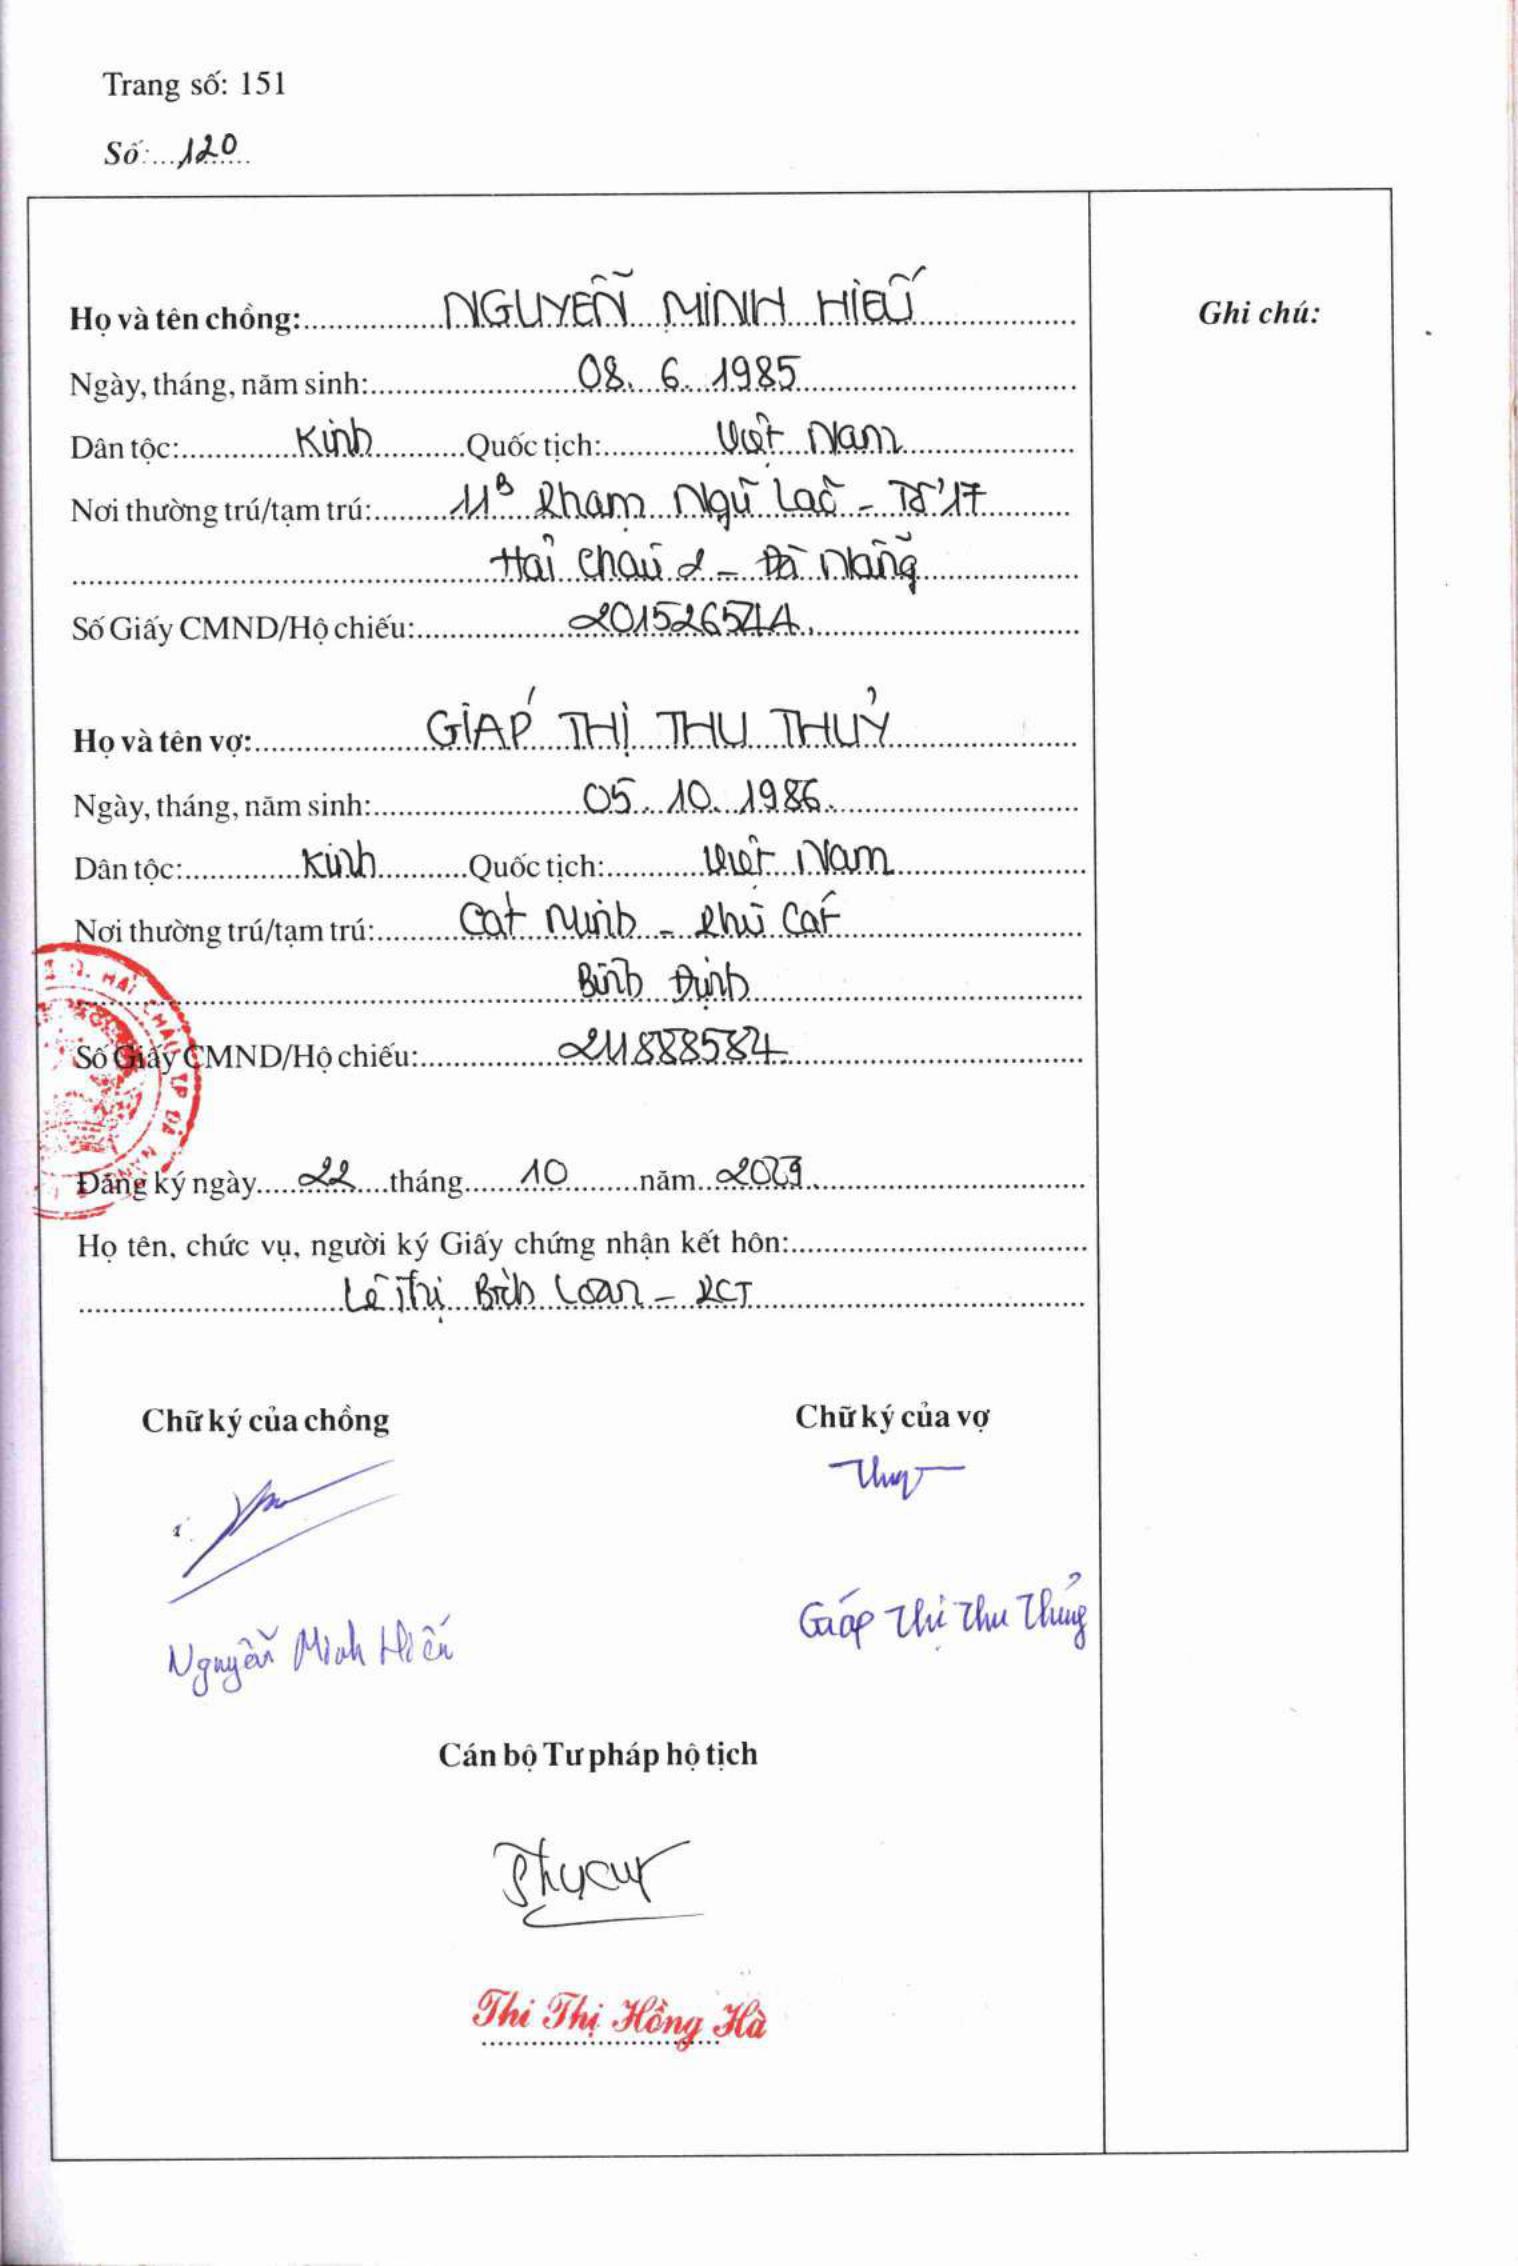 Trang số: 151
Số: 120
Họ và tên chồng: NGUYỄN MINH HIẾU
Ghi chú:
Ngày, tháng, năm sinh: 08. 6. 1985
Dân tộc: Kinh Quốc tịch: Việt Nam
Nơi thường trú/tạm trú: 11B Phạm Ngũ Lão - Tổ 17
Hải Châu 2 - Đà Nẵng
Số Giấy CMND/Hộ chiếu:
Họ và tên vợ: GIÁP THỊ THU THUỶ
Ngày, tháng, năm sinh: 05. 10. 1986.
Dân tộc: Kinh Quốc tịch: Việt Nam
Nơi thường trú/tạm trú: Cát Minh - Phù Cát
Bình Định
Số Giấy CMND/Hộ chiếu: 211888584
Q. HẢI CHÂU TP ĐÀ NẴNG
Đăng ký ngày 22 tháng 10 năm
Họ tên, chức vụ, người ký Giấy chứng nhận kết hôn:
Lê Thị Bích Loan - PCT
Chữ ký của chồng Chữ ký của vợ
Nguyễn Minh Hiếu Giáp Thị Thu Thủy
Cán bộ Tư pháp hộ tịch
Thi Thị Hồng Hà